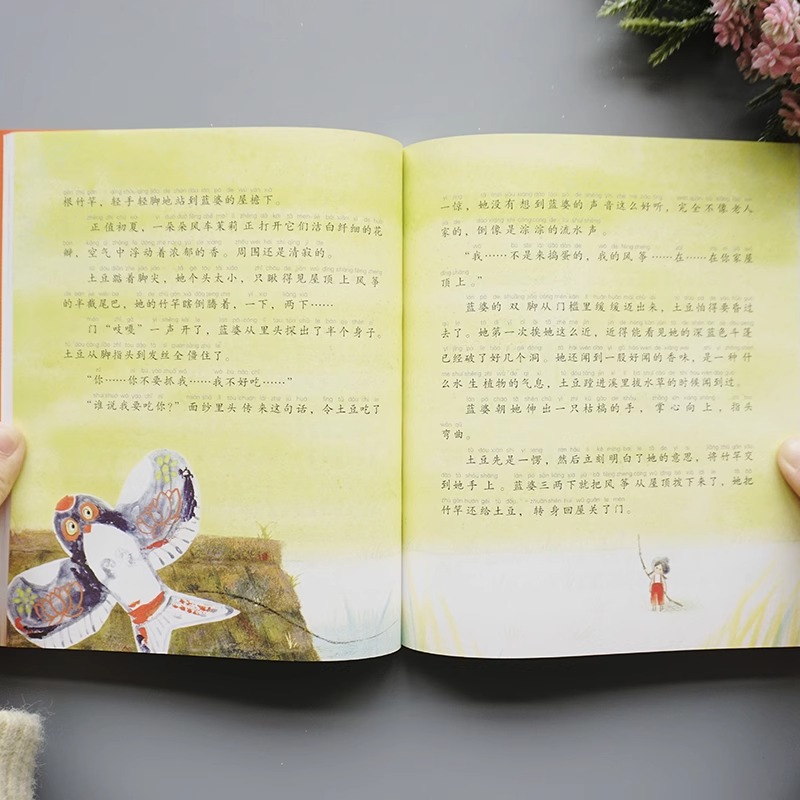 根竹竿，轻手轻脚地站到蓝婆的屋檐下。
正值初夏，一朵朵风车茉莉正打开它们洁白纤细的花
瓣，空气中浮动着浓郁的香。周围还是清寂的。
土豆踮着脚尖，她个头太小，只瞅得见屋顶上风筝
的半截尾巴，她的竹竿瞎倒腾着，一下，两下……
门“吱嘎”一声开了，蓝婆从里头探出了半个身子。
土豆从脚指头到发丝全僵住了。
“你……你不要抓我……我不好吃……”
“谁说我要吃你？”面纱里头传来这句话，令土豆吃了
一惊，她没有想到蓝婆的声音这么好听，完全不像老人
家的，倒像是淙淙的流水声。
“我……不是来捣蛋的，我的风筝……在……在你家屋
顶上。”
蓝婆的双脚从门槛里缓缓迈出来，土豆怕得要昏过
去了。她第一次挨她这么近，近得能看见她的深蓝色斗篷
已经破了好几个洞。她还闻到一股好闻的香味，是一种什
么水生植物的气息，土豆蹚进溪里拔水草的时候闻到过。
蓝婆朝她伸出一只枯槁的手，掌心向上，指头
弯曲。
土豆先是一愣，然后立刻明白了她的意思，将竹竿交
到她手上。蓝婆三两下就把风筝从屋顶拨下来了，她把
竹竿还给土豆，转身回屋关了门。